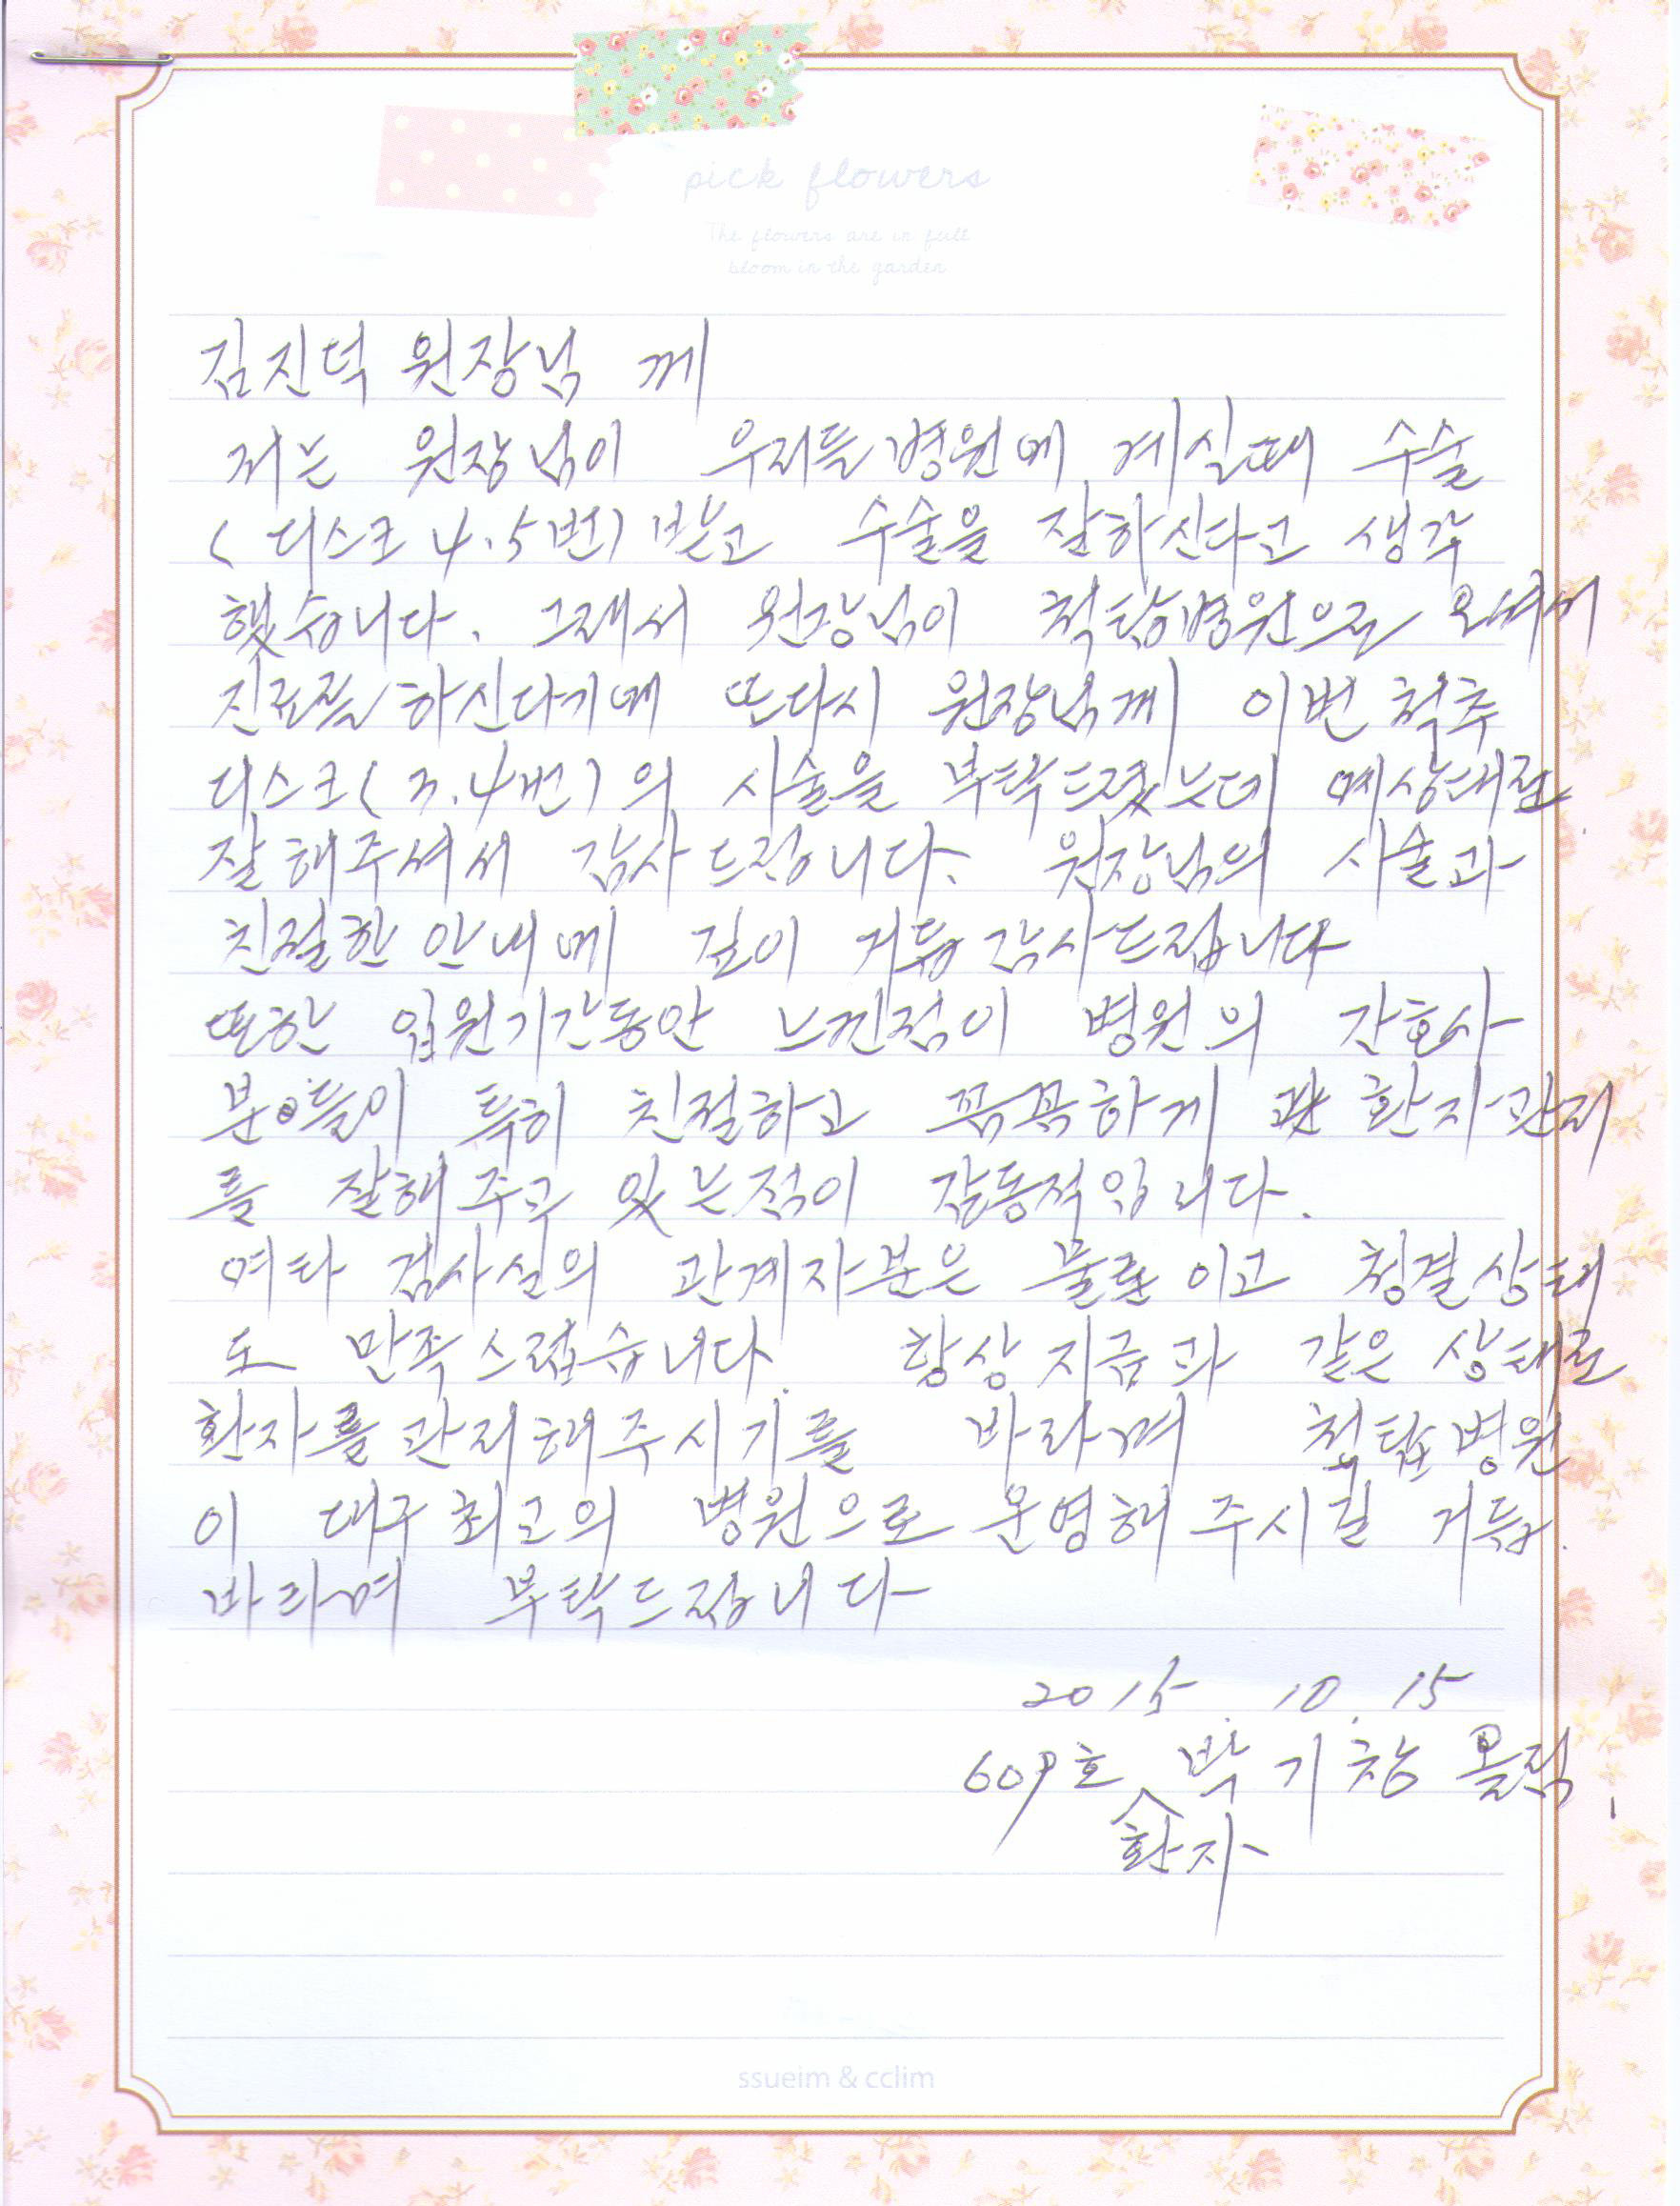 pick flowers
The flowers are in full
bloom in the garden
김진덕 원장님 께
저는 원장님이 우리들병원에 계실때 수술
(디스크 4.5번) 받고 수술을 잘하신다고 생각
했습니다. 그래서 원장님이 척탑병원으로 오셔서
진료를 하신다기에 또다시 원장님께 이번 척추
디스크(3.4번)의 시술을 부탁드렸는데 예상대로
잘해주셔서 감사드립니다. 원장님의 시술과
친절한 안내에 깊이 거듭 감사드립니다
또한 입원기간동안 느낀점이 병원의 간호사
분들이 특히 친절하고 꼼꼼하게 환자관리
를 잘해주고 있는점이 감동적입니다.
여타 검사실의 관계자분은 물론이고 청결상태
도 만족스럽습니다. 항상 지금과 같은 상태로
환자를 관리해주시기를 바라며 척탑병원
이 대구최고의 병원으로 운영해 주시길 거듭
바라며 부탁드립니다
2015. 10. 15
609호 박기창 올림
환자
ssueim & cclim